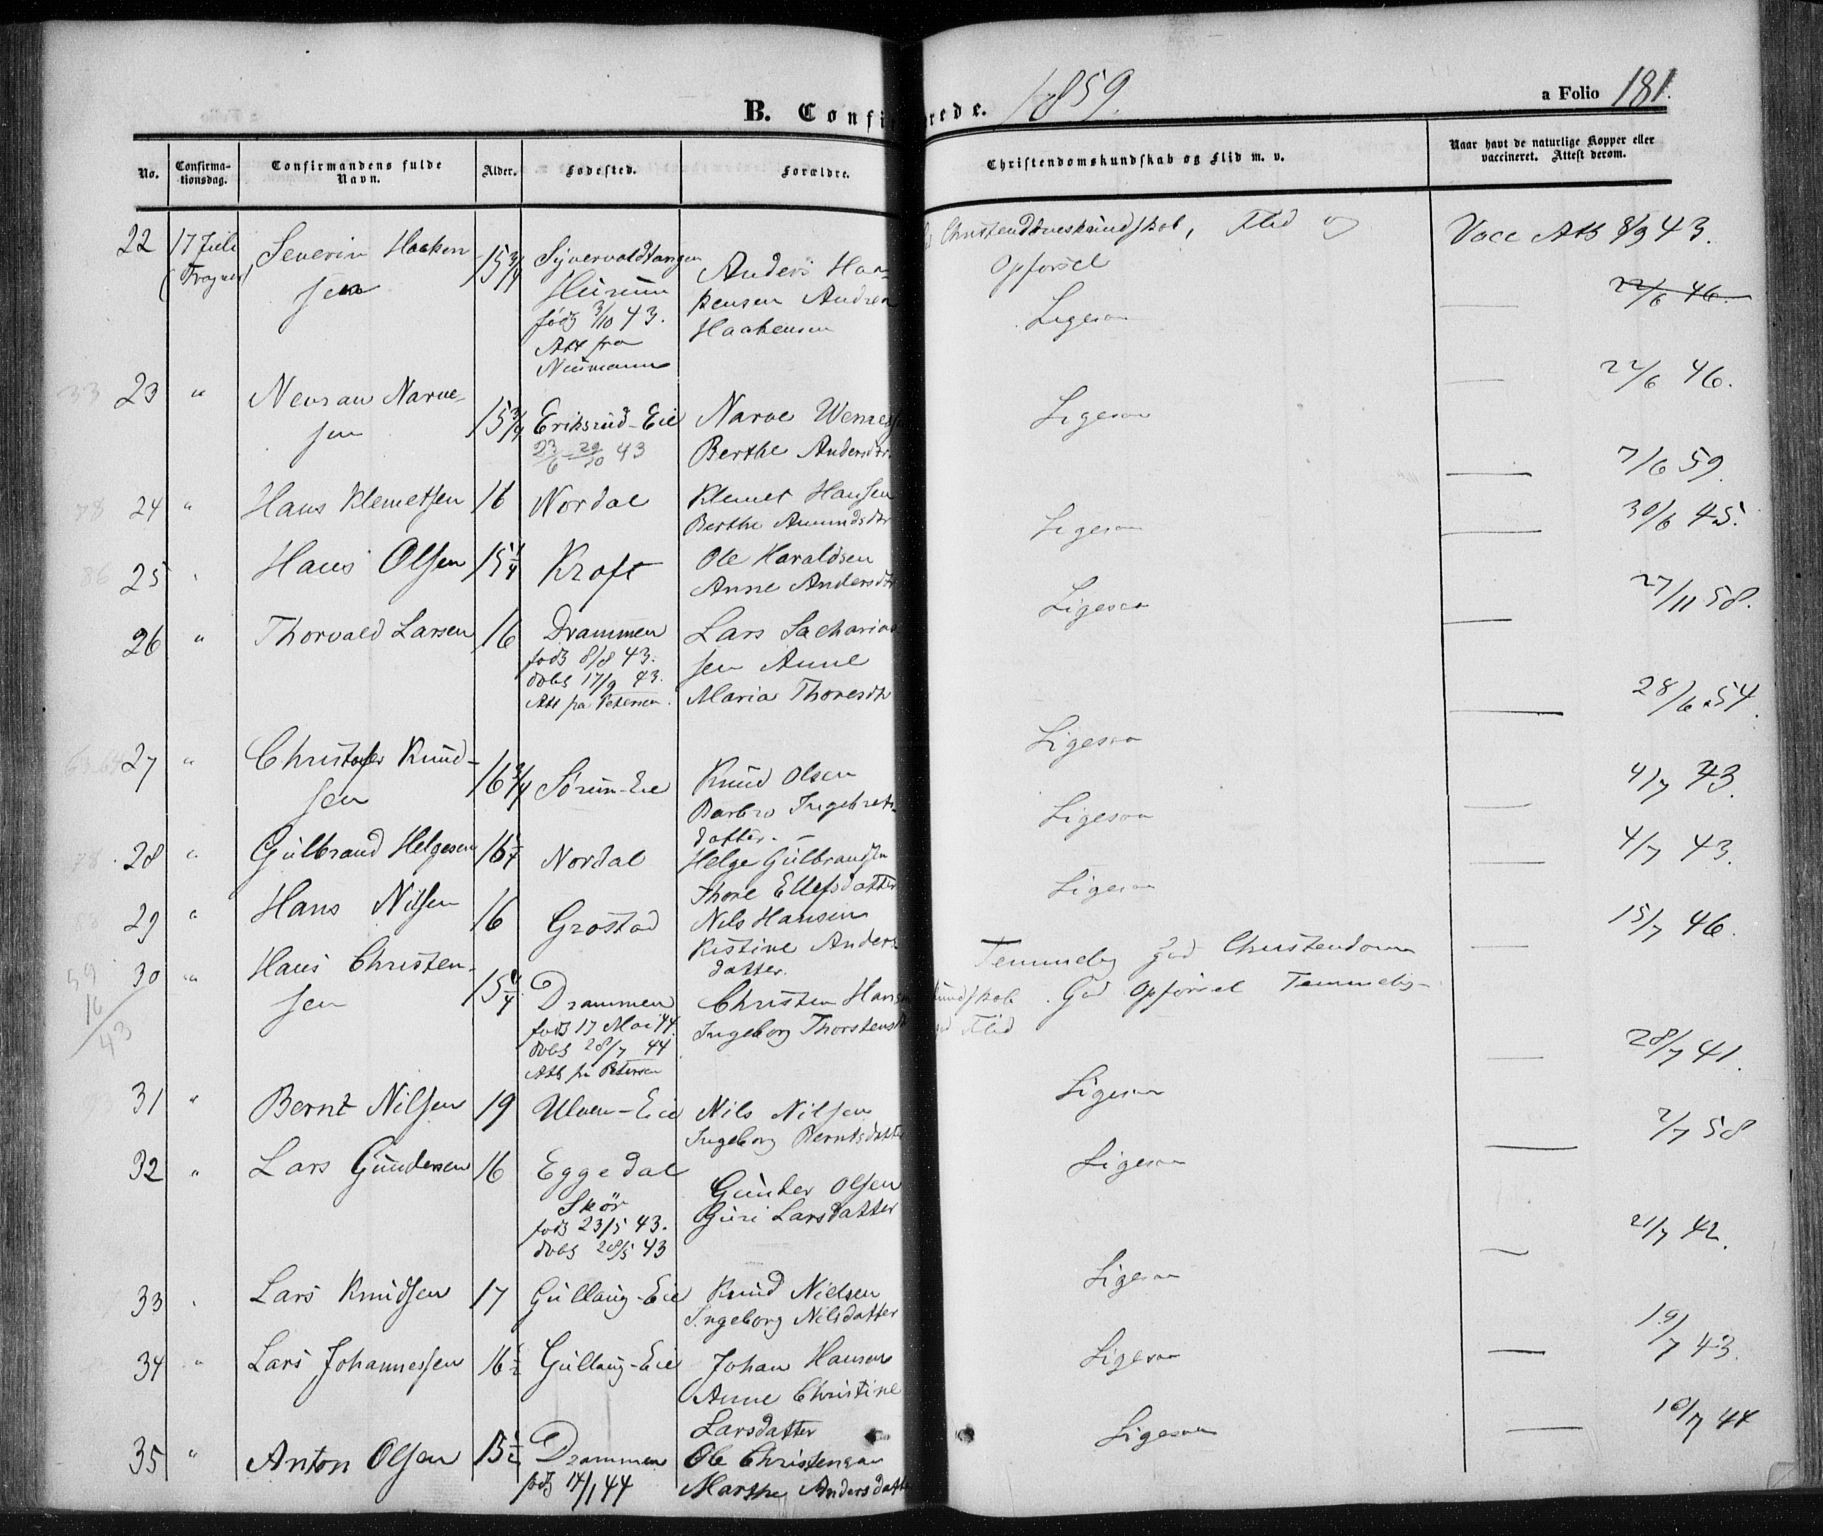 B. Confi
rede. 1859.
a Folio 181.
No.
Confirma-
tionsdag.
Confirmandens fulde
Navn.
Alder.
Fødested.
Forældre.
Christendomskundskab og Flid m. v.
Naar havt de naturlige Kopper eller
vaccineret. Attest derom.
22 17 Juli Severin Haaken 15 3/4 Anders Haa-
(Frogner) sen Hurum kensen Andrea
født 3/10 43. Haakensen
Att fra
Neumann
Christendomskundskab, Flid og
Opførsel
Vacc Att 8/9 43.
Ligesaa 22/6 46.
23 " Narve- 15 3/4 Eriksrud-Eie Narve
sen 23/6 - 29/10 43 Berthe Andersdtr
Ligesaa 22/6 46.
24 " Hans Klemetsen 16 Nordal Klemet Hansen
Berthe Amundsdtr
Ligesaa 7/6 59.
25 Hans Olsen 15 1/4 Kroft Ole Haraldsen
Anne Andersdtr
Ligesaa 30/6 45.
26 " Thorvald Larsen 16 Drammen Lars Sacharias
født 8/8 43. sen Anne
døbt 17/9 43. Maria Thoresdtr
Att fra Petersen.
Ligesaa 27/11 58.
27 " Christofer Knud- 16 3/4 Sørum-Eie Knud Olsen
sen Barbro Ingebrets
datter.
Ligesaa 28/6 54.
28 " Gulbrand Helgesen Nordal Helge Gulbrandsen
Thore Ellefsdatter
Ligesaa 4/7 43.
29 " Hans Nilsen 16 Grostad Nils Hansen
Kistine Anders
datter.
Ligesaa 4/7 43.
30 " Hans Christen- Drammen Christen Hansen
sen født 17 Mai 44. Ingeborg Thorstensdtr
døbt 28/7 44
Att fra Petersen
59
16
43
Temmelig god Christendoms
kundskab. God Opførsel Temmelig
god Flid
15/7 46.
31 " Bernt Nilsen 19 Ulven-Eie Nils Nilsen
Ingeborg Berntsdatter
Ligesaa 28/7 41.
32 " Lars Gundersen 16 Eggedal Gunder Olsen
Skör Guri Larsdatter
født 23/5 43.
døbt 28/5 43
Ligesaa 2/7 58
33 Lars Knudsen 17 Gullaug-Eie Knud Nielsen
Ingeborg Nilsdatter
Ligesaa 21/7 42.
34 " Lars Johannessen 16 1/2 Gullaug-Eie Johan Hansen
Anne Christine
Larsdatter
Ligesaa 19/7 43.
35 " Anton Olsen 15 1/2 Drammen Ole Christensen
født 14/1 44 Marthe Andersdatter
Ligesaa 10/7 44